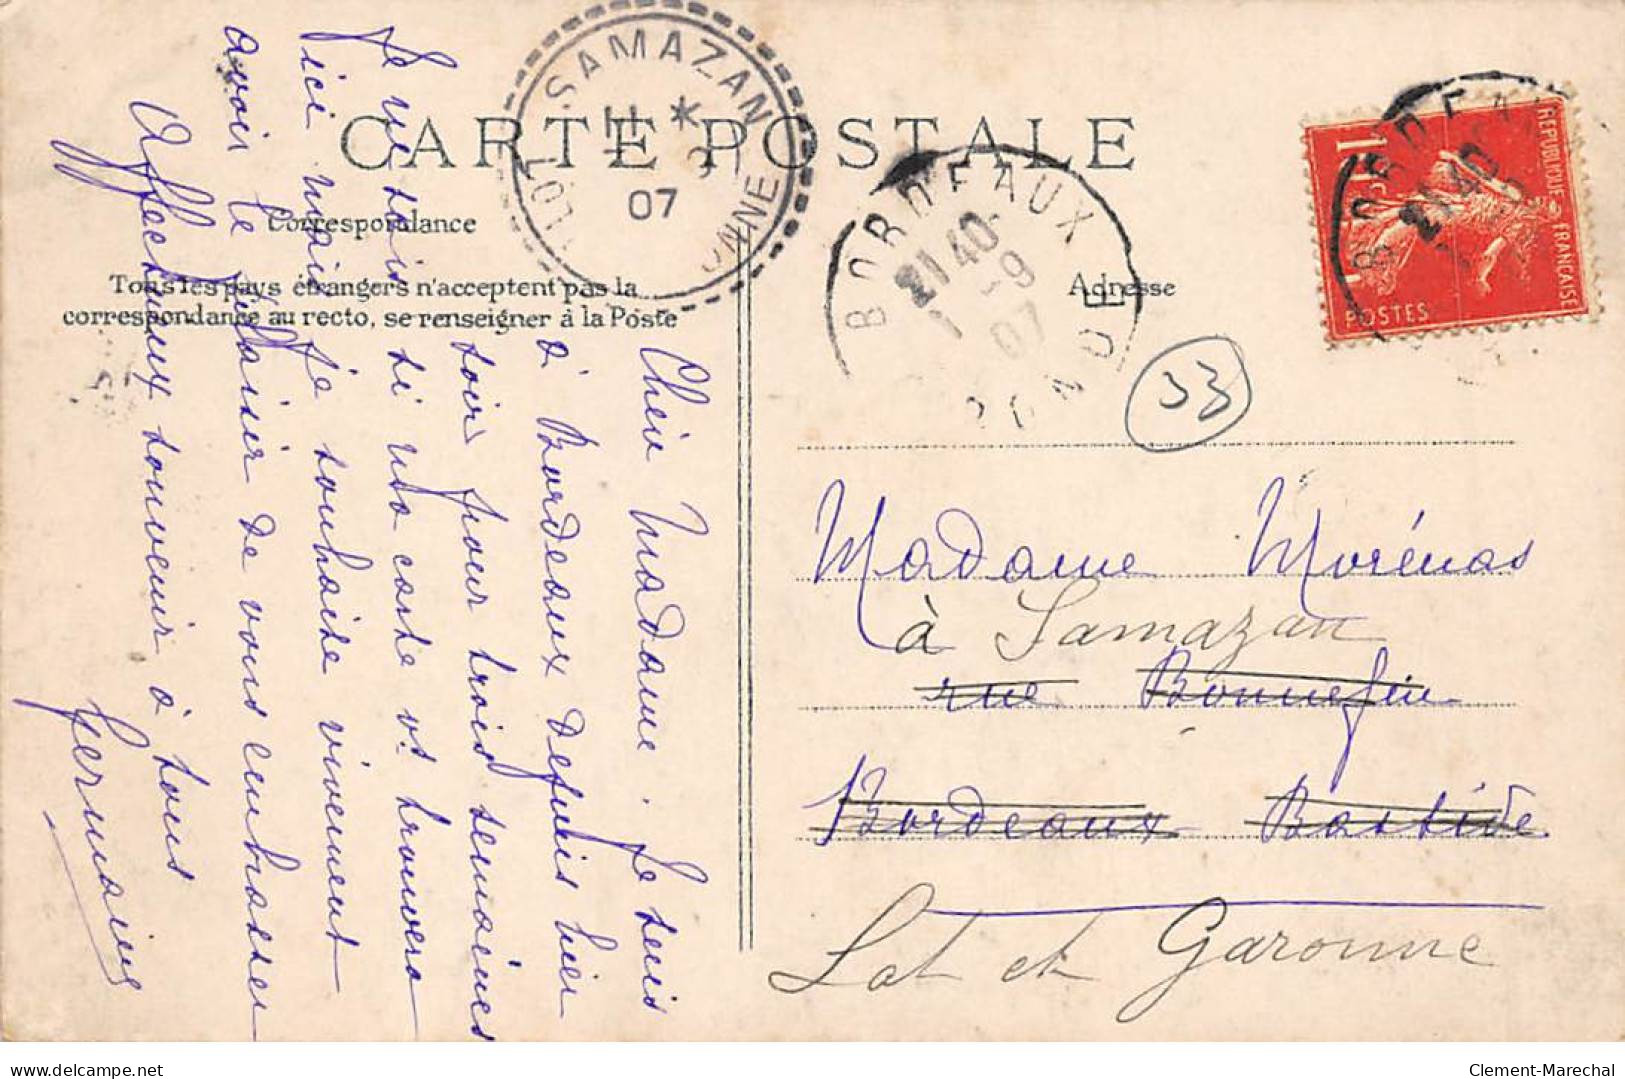 CARTE POSTALE
Correspondance
Tous les pays étrangers n'acceptent pas la
correspondance au recto, se renseigner à la Poste
Adresse
SAMAZAN
LOT
ONNE
07
BORDEAUX
21 40
1 -9
07
GIROND
BORDEAU
21 40
REPUBLIQUE FRANÇAISE
POSTES
33
Chère Madame. Je suis
à Bordeaux depuis hier
soir pour trois semaines
Je ne sais si ma carte vs trouvera
ici mais je souhaite vivement
avoir le plaisir de vous embrasser
Affectueux souvenir à tous
Germaine
Madame Morénas
à Samazan
rue Bonnefin
Bordeaux Bastide
Lot et Garonne
delcampe.net
Clement-Marechal